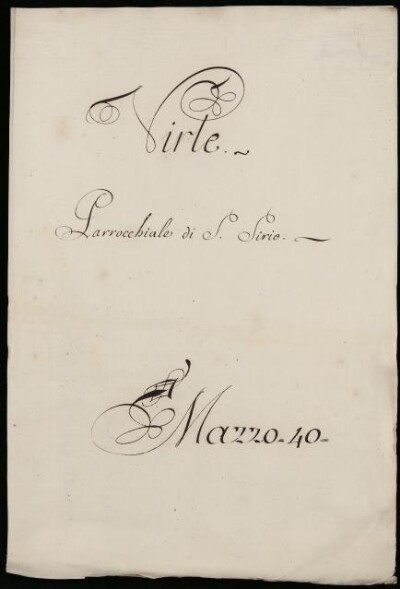 Virle.~
Parrocchiale di S. Sirio.~
Mazzo-40-